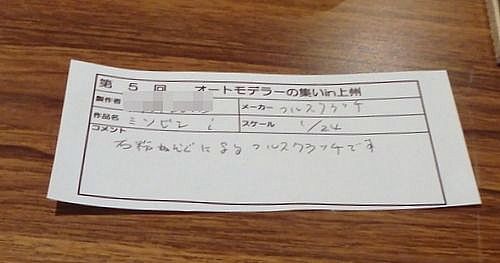 第 5 回 オートモデラーの集いin上州
製作者 メーカー フルスクラッチ
作品名 ミツビシ i スケール 1/24
コメント
石粉ねんどによるフルスクラッチです